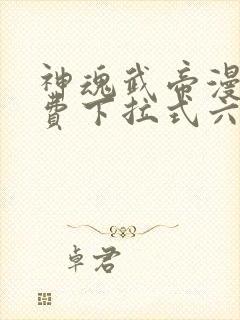 神魂武帝漫
费下拉式六
卓君